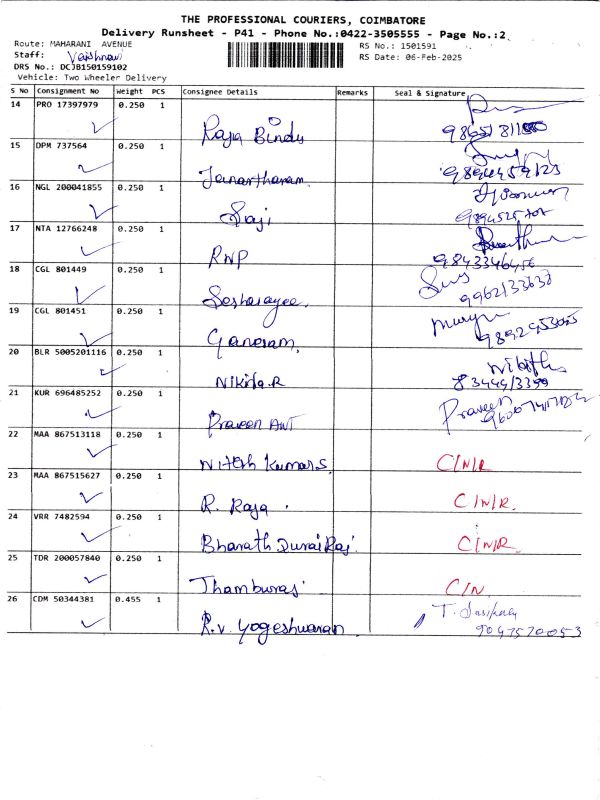 THE PROFESSIONAL COURIERS, COIMBATORE
Delivery Runsheet - P41 - Phone No.:0422-3505555 - Page No.:2
Route: MAHARANI AVENUE
RS No.: 1501591
Staff: Vaishnavi
RS Date: 06-Feb-2025
DRS No.: DCJB150159102
Vehicle: Two Wheeler Delivery
S No Consignment No Weight PCS Consignee Details Remarks Seal & Signature
14 PRO 17397979 0.250 1
Raja Bindu
15 OPM 737564 0.250 1
Janartharam 9894459123
16 NGL 200041855 0.250 1
Saji
17 NTA 12766248 0.250 1
RNP 9843346456
18 CGL 801449 0.250 1
Sesharayee. 9962133638
19 CGL 801451 0.250 1
Ganeram,
20 BLR 5005201116 0.250 1
Nikila.R
21 KUR 696485252 0.250 1
Praveen ANT Praveen
22 MAA 867513118 0.250 1
Nitesh Kumar S C/N/R
23 MAA 867515627 0.250 1
R. Raja. C/N/R.
24 VRR 7482594 0.250 1
Bharath Durai Raj C/N/R
25 TDR 200057840 0.250 1
Thamburaj C/N.
26 CDM 50344381 0.455 1
R.V. Yogeshwaran 9047570053